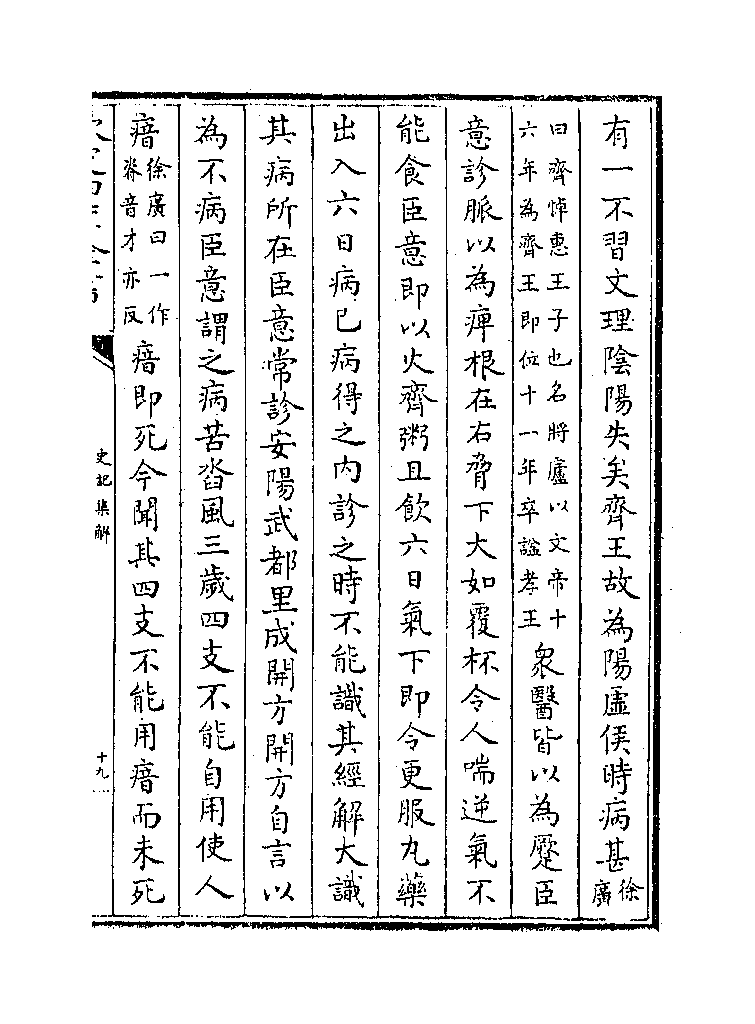 有一不習文理陰陽失矣齊王故為陽虛侯時病甚徐廣
曰齊悼惠王子也名將廬以文帝十六年為齊王即位十一年卒諡孝王衆醫皆以為蹷臣
意診脈以為痺根在右脅下大如覆杯令人喘逆氣不
能食臣意即以火齊粥且飲六日氣下即令更服丸藥
出入六日病已病得之内診之時不能識其經解大識
其病所在臣意常診安陽武都里成開方開方自言以
為不病臣意謂之病苦沓風三歲四支不能自用使人
瘖徐廣曰一作脊音才亦反瘖即死今聞其四支不能用瘖而未死
史記集解
十九